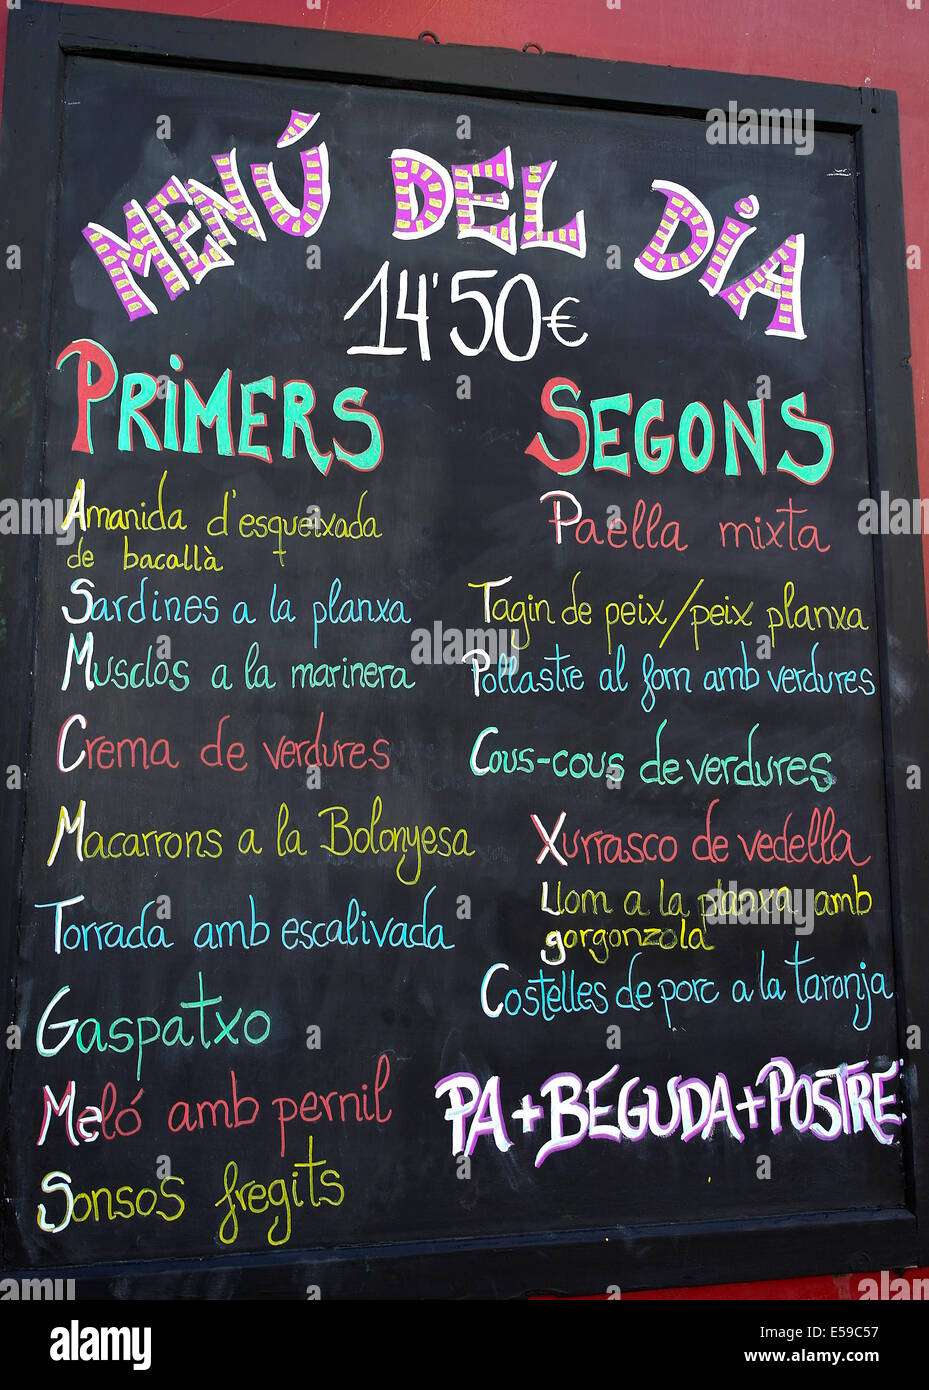 MENÚ DEL DiA
14'50€
PRiMERS
Amanida d'esqueixada
de bacallà
Sardines a la planxa
Musclos a la marinera
Crema de verdures
Macarrons a la Bolonyesa
Torrada amb escalivada
Gaspatxo
Meló amb pernil
Sonsos fregits
SEGONS
Paella mixta
Tagin de peix/peix planxa
Pollastre al forn amb verdures
Cous-cous de verdures
Xurrasco de vedella
Llom a la planxa amb
gorgonzola
Costelles de porc a la taronja
PA+BEGUDA+POSTRE
alamy stock photo
E59C57
www.alamy.com